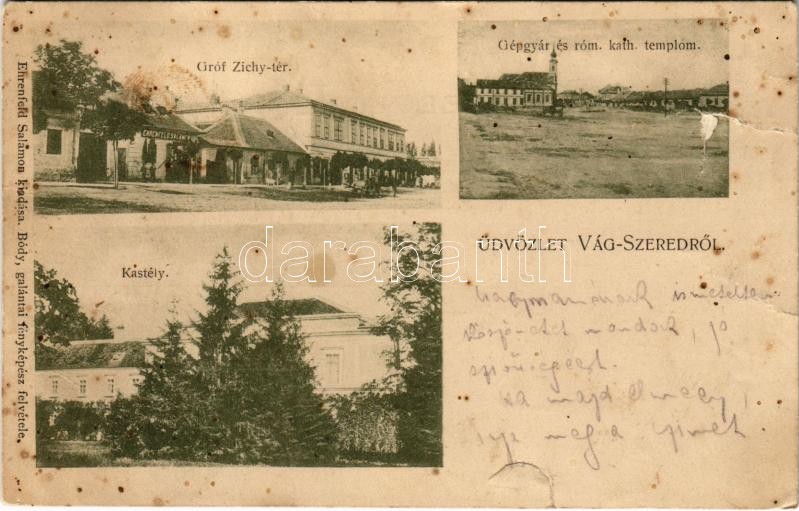 Gróf Zichy-tér.
EHRENFELD SALAMON
Gépgyár és róm. kath. templom.
Kastély.
ÜDVÖZLET VÁG-SZEREDRŐL.
Ehrenfeld Salamon kiadása. Bódy, galántai fényképész felvétele.
darabanth
Nagymamának ismételten
köszönetet mondok, jó
szívűségéért.
Ha majd
írja meg a czimét